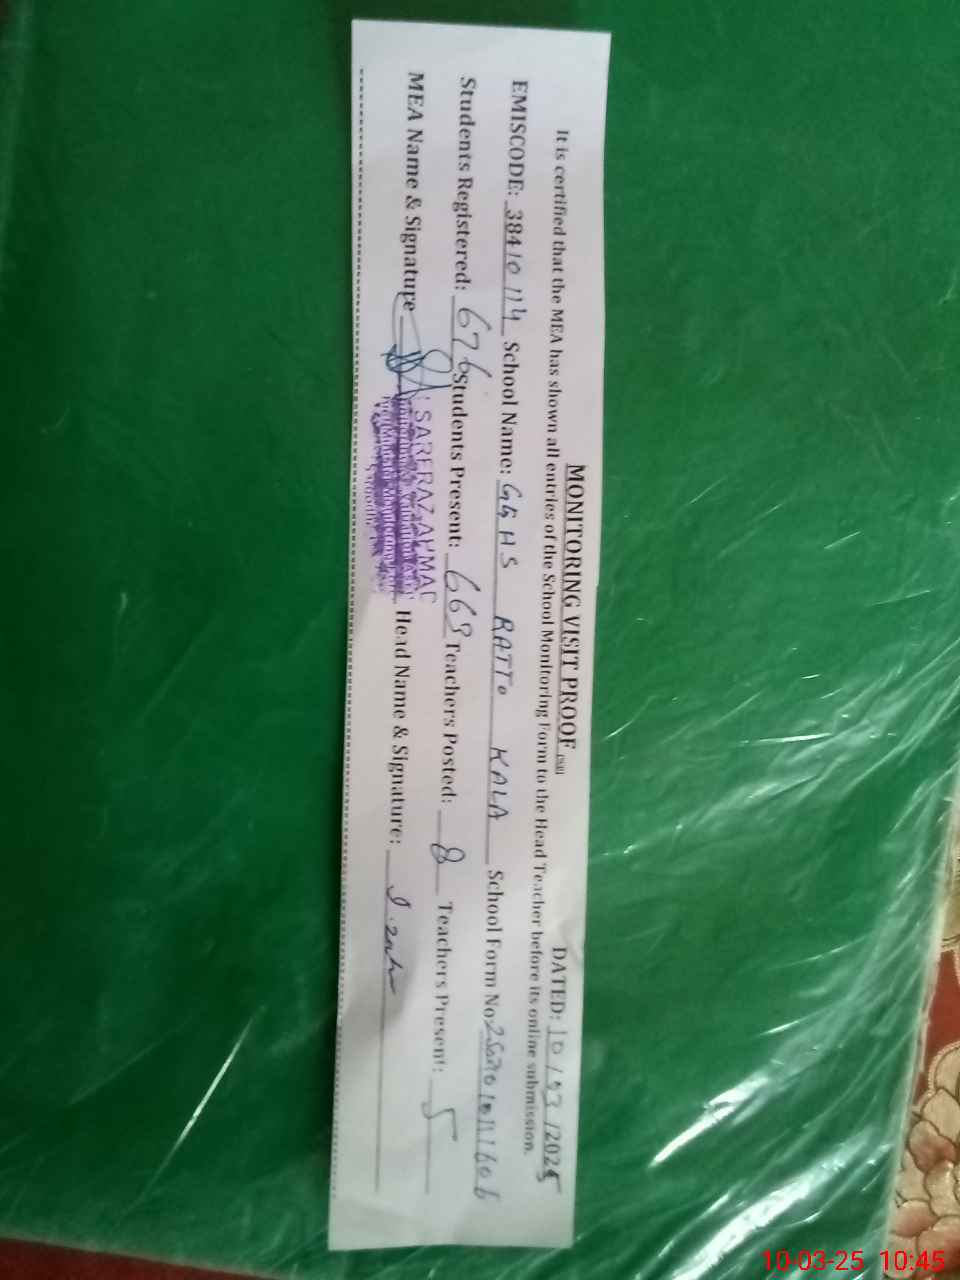 MONITORING VISIT PROOF
DATED: 10/03/2025
It is certified that the MEA has shown all entries of the School Monitoring Form to the Head Teacher before its online submission.
EMISCODE: 38410114 School Name: GGHS RATTO KALA School Form No
Students Registered: 676 Students Present: 663 Teachers Posted: 8 Teachers Present: 5
MEA Name & Signature Head Name & Signature:
SARFRAZ AHMAD
10-03-25 10:45